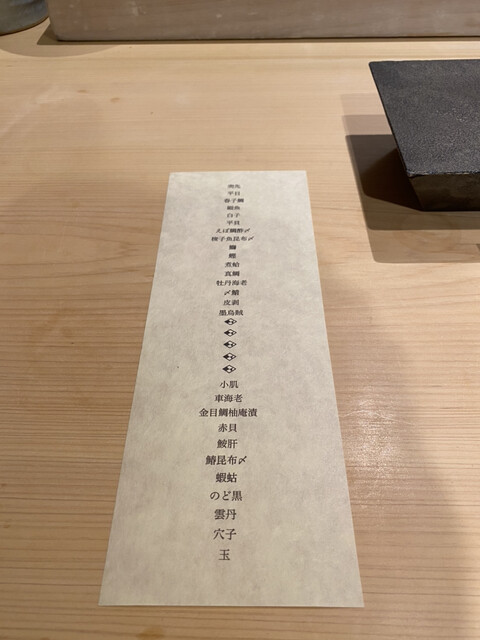 平目
春子鯛
白子
平貝
えぼ鯛酢〆
梭子魚昆布〆
鰤
鰹
煮蛤
真鯛
牡丹海老
〆鯖
皮剥
墨烏賊
小肌
車海老
金目鯛柚庵漬
赤貝
鮟肝
鰆昆布〆
蝦蛄
のど黒
雲丹
穴子
玉